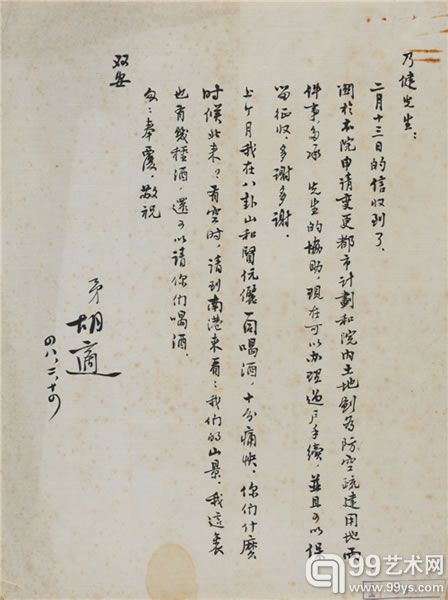 乃健先生：
二月十三日的信收到了。
關於本院申請變更都市計劃和院內土地劃為防空疏建用地兩
件事，多承 先生的協助，現在可以办理過户手續，並且可以保
留征收，多謝多謝。
上个月我在八卦山和賢伉儷一同喝酒，十分痛快。你們什麼
時候北來？有空时，請到南港來看看我們的山景。我這裏
也有幾種酒，還可以請你們喝酒。
匆匆奉覆，敬祝
双安
弟 胡適
四八、二、十四
99艺术网
www.99ys.com